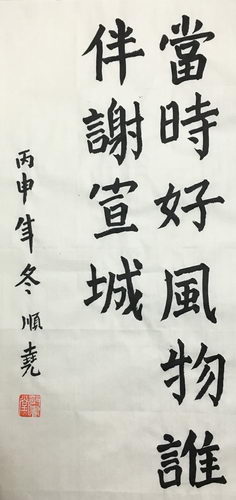 當時好風物誰
伴謝宣城
丙申年冬順堯